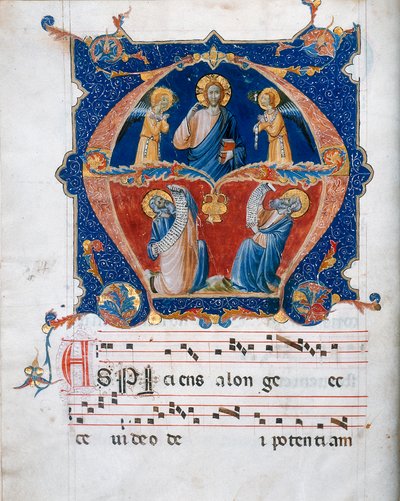 ASPI ciens alon ge ec
ce uideo de i potentiam